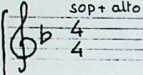 sop + alto
4
4